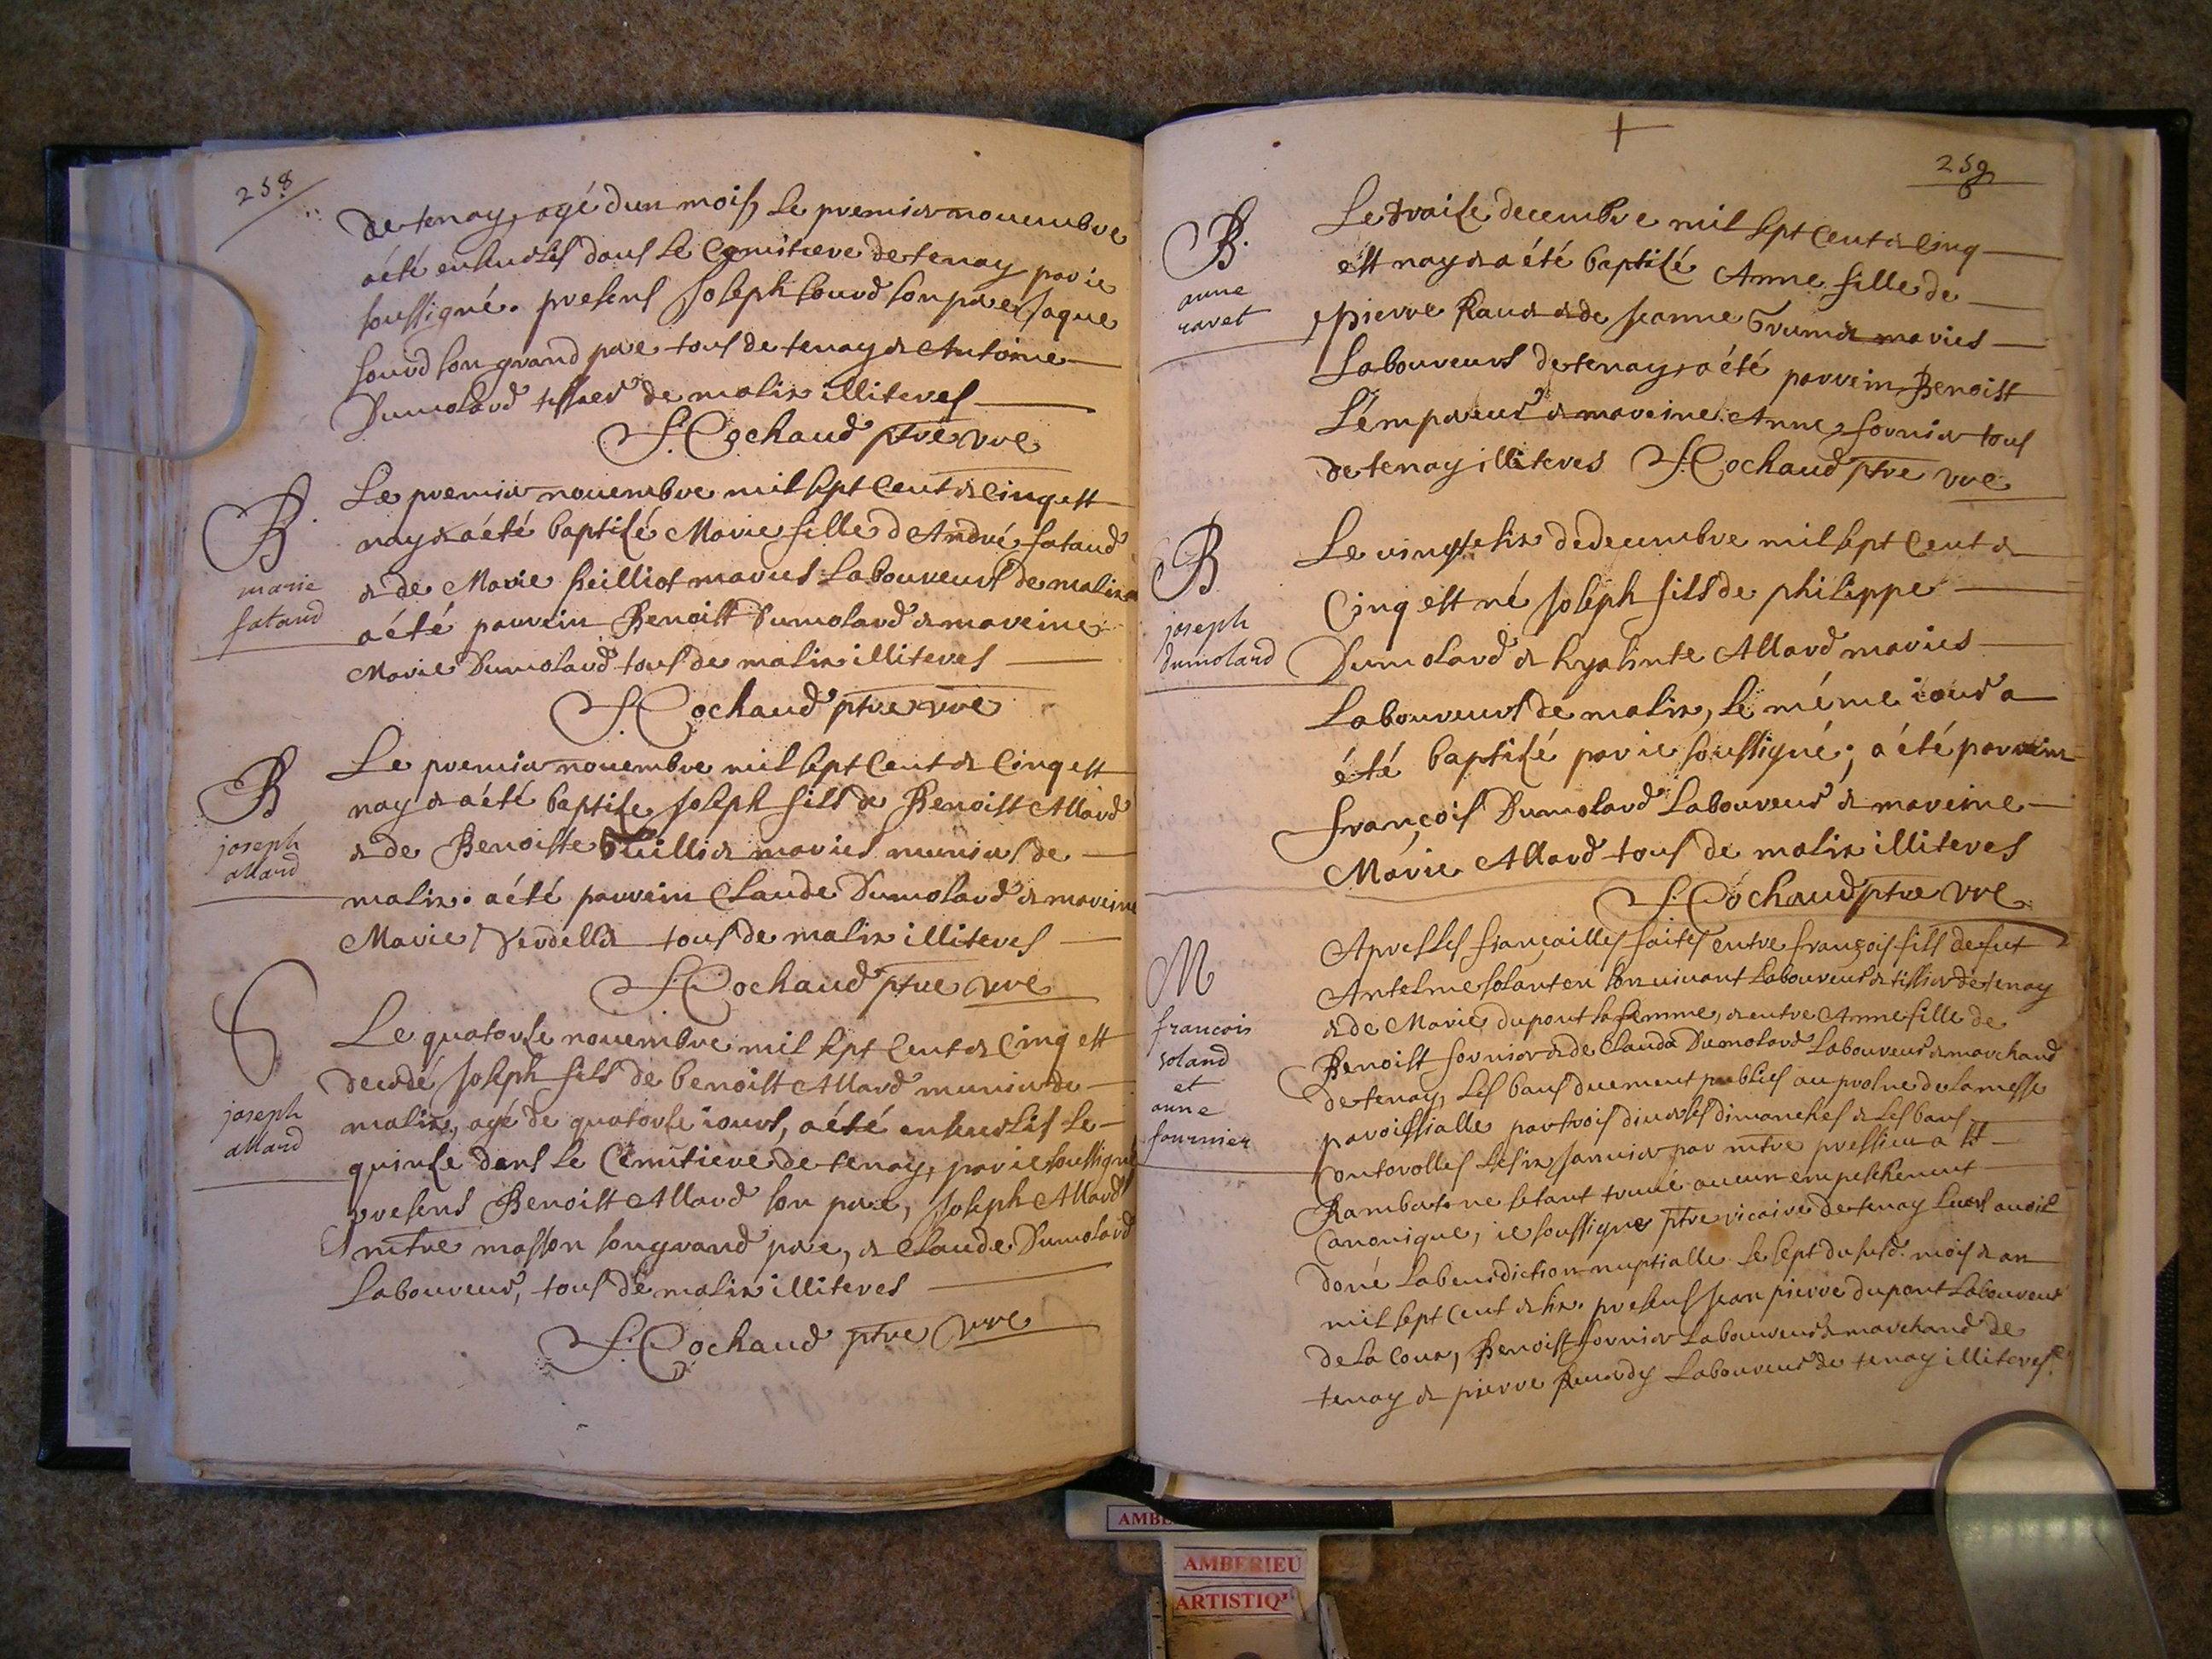 258
de tenay, agé d'un mois, le premier novembre
a été enseuelis dans le Cemitiere de tenay par ie
soussigné. presens Joseph sourd son pere, Jaque
sourd son grand pere tous de tenay & Antoine
Dumolard tissier de malix illiteres
S. Cochaud ptre vre
B.
marie
fataud
Le premier novembre mil sept Cent & Cinq est
nay & a été baptisé Marie fille d'André fataud
& de Marie heilliot mariés Laboureurs de malix
a été parrein Benoist Dumolard & mareine
Marie Dumolard tous de malix illiteres
S. Cochaud ptre vre
B
joseph
allard
Le premier novembre mil sept Cent & Cinq est
nay & a été baptise Joseph fils de Benoist Allard
& de Benoiste mariés muniers de
malix. a été parrein Claude Dumolard & mareine
Marie Verdellet tous de malix illiteres
S. Cochaud ptre vre
S
joseph
allard
Le quatorse novembre mil sept Cent & Cinq est
decedé Joseph fils de benoist Allard munier de
malix, agé de quatorse iours, a été enseuelis le
quinse dans le Cemitiere de tenay, par ie soussigné
presens Benoist Allard son pere, Joseph Allard
mtre masson son grand pere, & Claude Dumolard
Laboureur, tous de malix illiteres
S. Cochaud ptre vre
259
B.
anne
ravet
Le traise decembre mil sept Cent & Cinq
est nay & a été baptisé Anne fille de
pierre Raue & de Jeanne mariés
Laboureurs de tenay, a été parrein Benoist
L'empereur & mareine Anne fornier tous
de tenay illiteres S. Cochaud ptre vre
B
joseph
dumolard
Le vingt & six de decembre mil sept Cent &
Cinq est né Joseph fils de philippe
Dumolard & hyasinte Allard mariés
Laboureurs de malix, le méme iour a
été baptisé par ie soussigné; a été parrein
françois Dumolard Laboureur & mareine
Marie Allard tous de malix illiteres
S. Cochaud ptre vre
M
francois
soland
et
anne
fournier
Apres les fiançailles faites entre françois fils de fut
Antelme solant en son uiuant Laboureur & tissier de tenay
& de Marie dupont sa femme, & entre Anne fille de
Benoist fornier & de Clauda Dumolard Laboureur & marchand
de tenay, les bans duement publies au prosne de la messe
paroissialle par trois diuerses dimanches & les bans
Controlles le six Januier par mtre pressieu a St
Rambert. ne setant truué aucun empeschement
Canonique, ie soussigné ptre vicaire de tenay leurs auoir
doné la benediction nuptialle le sept du susd. mois & an
mil sept Cent & six. presens Jean pierre dupont Laboureur
de la Coux, Benoist fornier Laboureur & marchand de
tenay & pierre Laboureur de tenay illiteres.
AMBERIEU
ARTISTIQ